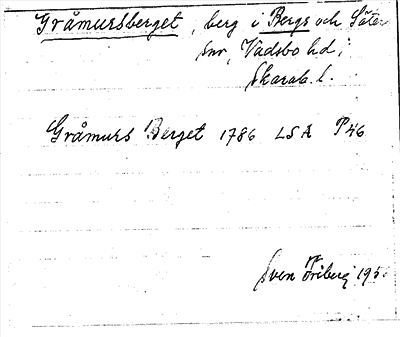 Gråmursberget, berg i Bergs och Säter
snr, Vadsbo hd,
Skarab. l.
Gråmurs Berget 1786 LSA P46
Sven Öriberg 195